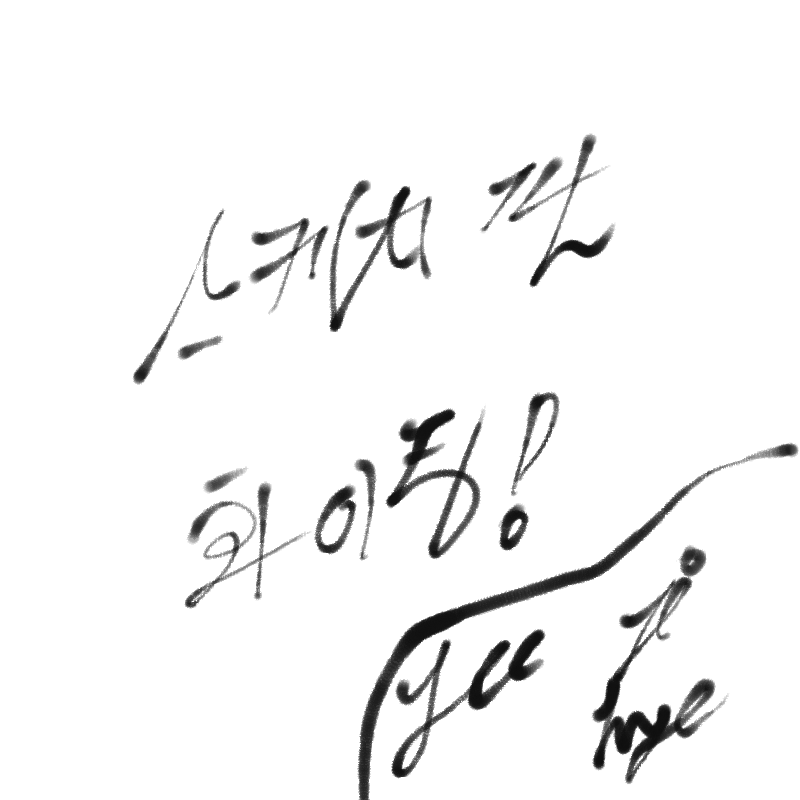 스케치 깐
화이팅!
yee ji
hye